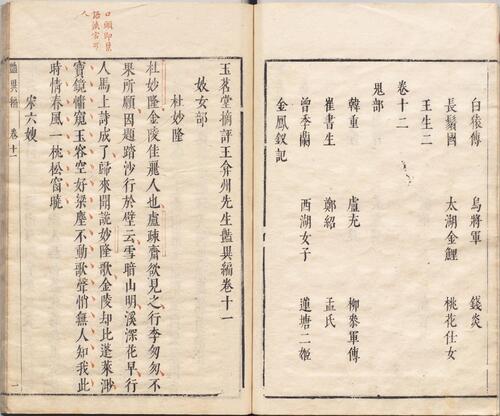 白猿傳 烏將軍 錢炎
長鬚國 太湖金鯉 桃花仕女
王生二
卷十二
鬼部
韓重 盧充 柳參軍傳
崔書生 鄭紹 孟氏
曾季蘭 西湖女子 蓮塘二姬
金鳳釵記
玉茗堂摘評王弇州先生豔異編卷十一
妓女部
杜妙隆
杜妙隆金陵佳麗人也盧疎齋欲見之行李匆匆不
果所願因題踏沙行於壁云雪暗山明溪深花早行
人馬上詩成了歸來聞說妙隆歌金陵却比蓬萊渺
寶鏡慵窺玉容空好梁塵不動歌聲悄無人知我此
時情春風一枕松窗曉
宋六嫂
豔異編 卷十一 一